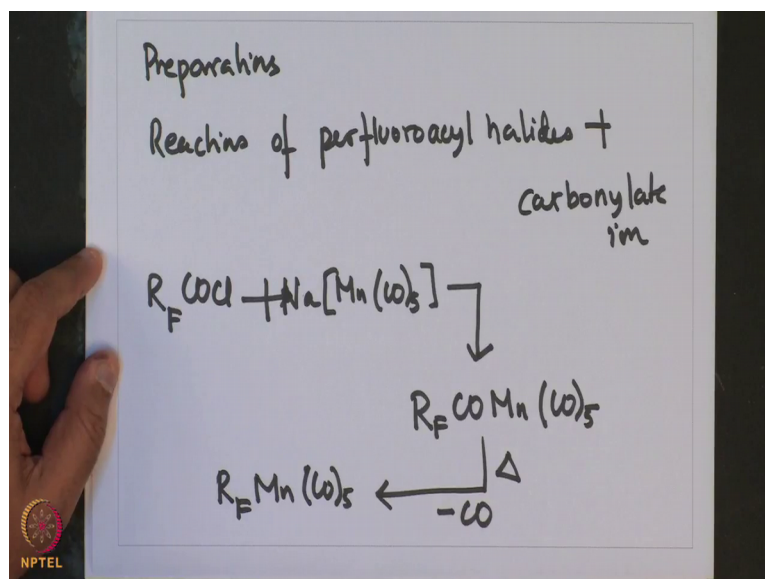 Preparations
Reactions of perfluoroacyl halides +
carbonylate
ion
R_F COCl + Na[Mn(CO)5]
R_F CO Mn (CO)5
Δ
R_F Mn (CO)5
-CO
NPTEL